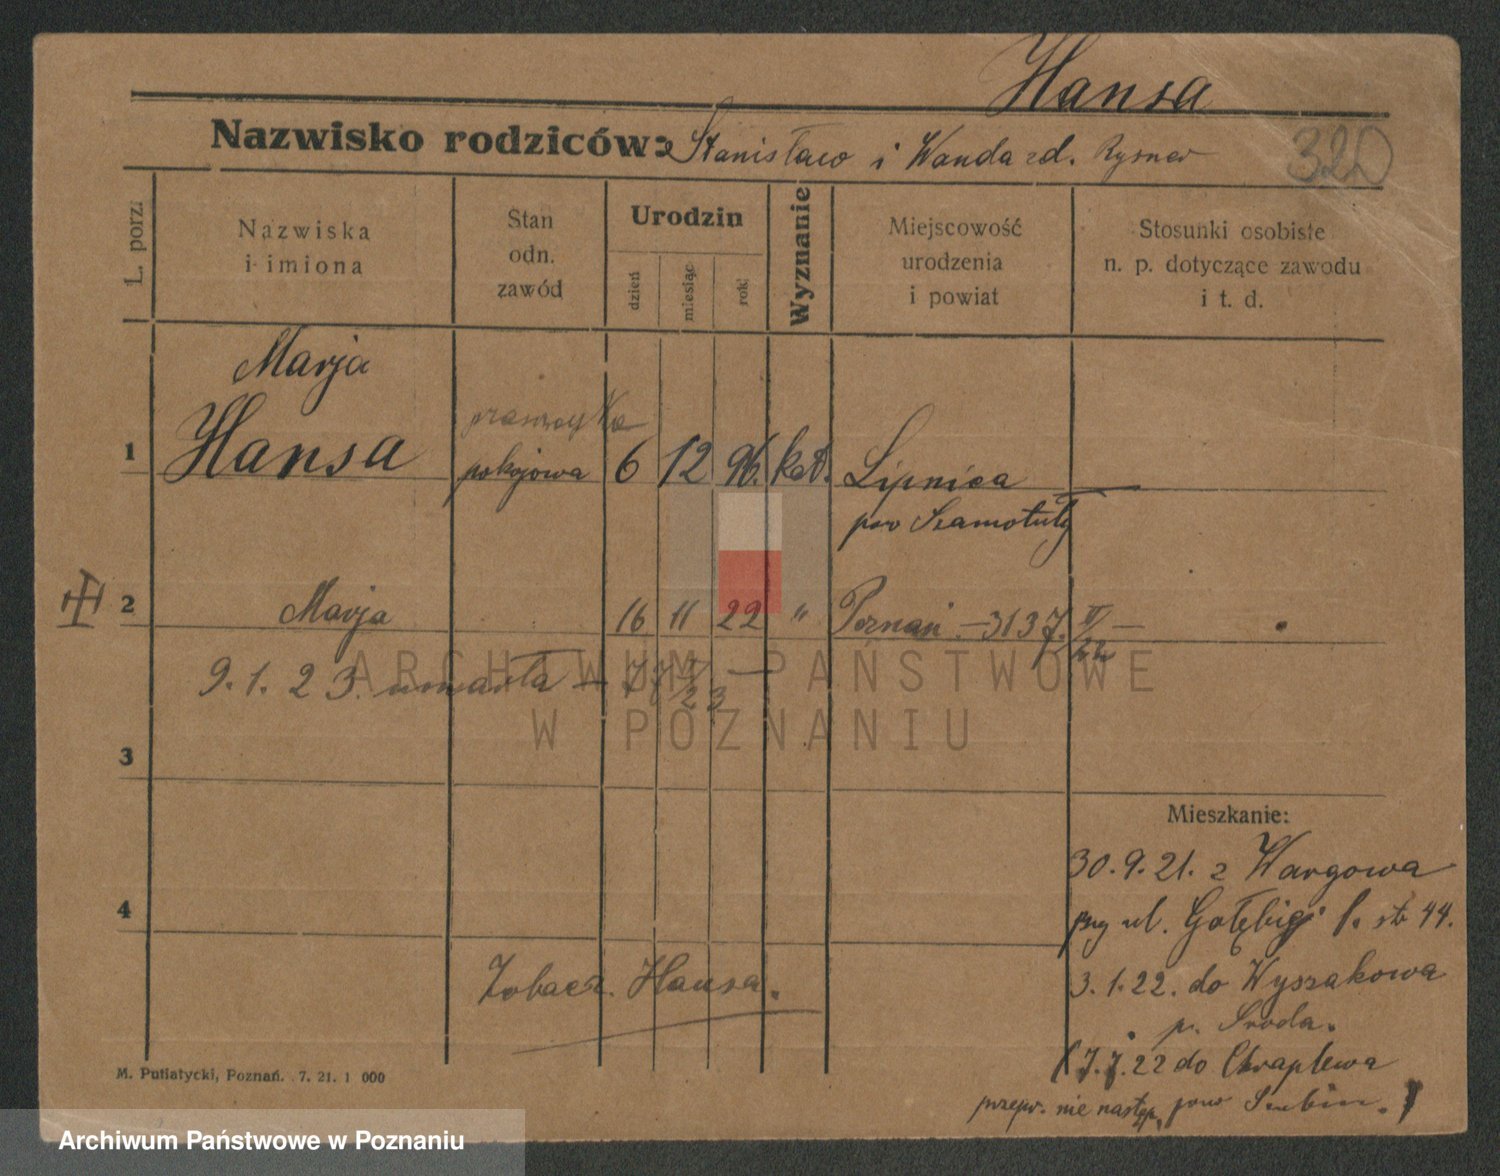 Hansa
Nazwisko rodziców: Stanisław i Wanda zd. Rysner
320
L. porz.
Nazwiska
i imiona
Stan
odn.
zawód
Urodzin
dzień
miesiąc
rok
Wyznanie
Miejscowość
urodzenia
i powiat
Stosunki osobiste
n. p. dotyczące zawodu
i t. d.
Marja
1 Hansa pokojowa 6 12 96. kat. Lipnica
pow Szamotuły
2 Marja 16 11 22 " Poznań. — 3137.
9.1.23. umarła —
ARCHIWUM PAŃSTWOWE
W POZNANIU
3
4
Mieszkanie:
30.9.21. z Wargowa
ul. Gołębiej 44.
3.1.22. do Wyszakowa
p. Sroda.
7.7.22 do Chraplewa
przepr. nie nastąp. pow Szubin.
Zobacz. Hansa.
M. Putiatycki, Poznań. 7. 21. 1 000
Archiwum Państwowe w Poznaniu